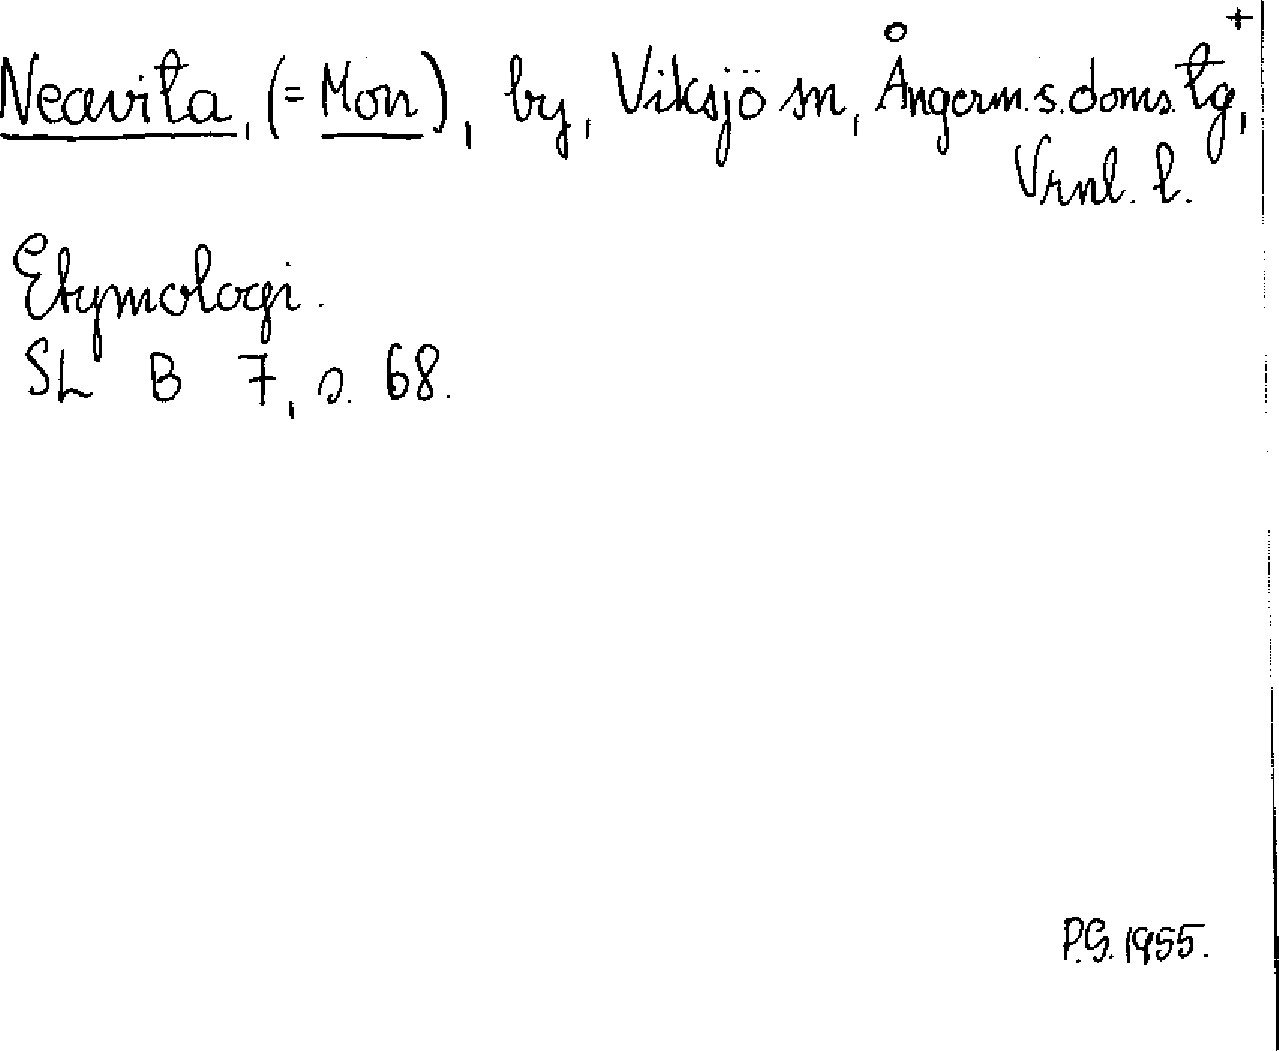 Neavita, (= Mon), by, Viksjö sn, Ångerm. s. doms. tg, +
Vrnl. l.
Etymologi.
SL B 7, s. 68.
P.G. 1955.